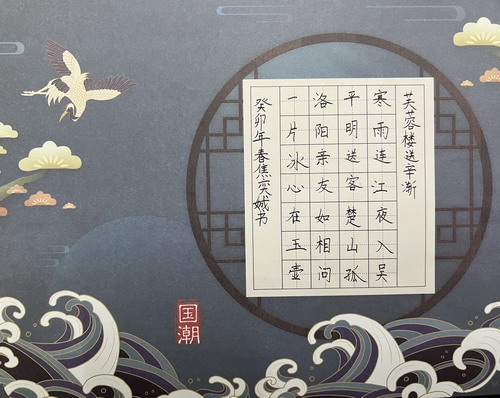 芙蓉楼送辛渐
寒雨连江夜入吴
平明送客楚山孤
洛阳亲友如相问
一片冰心在玉壶
癸卯年春焦奕娀书
国潮